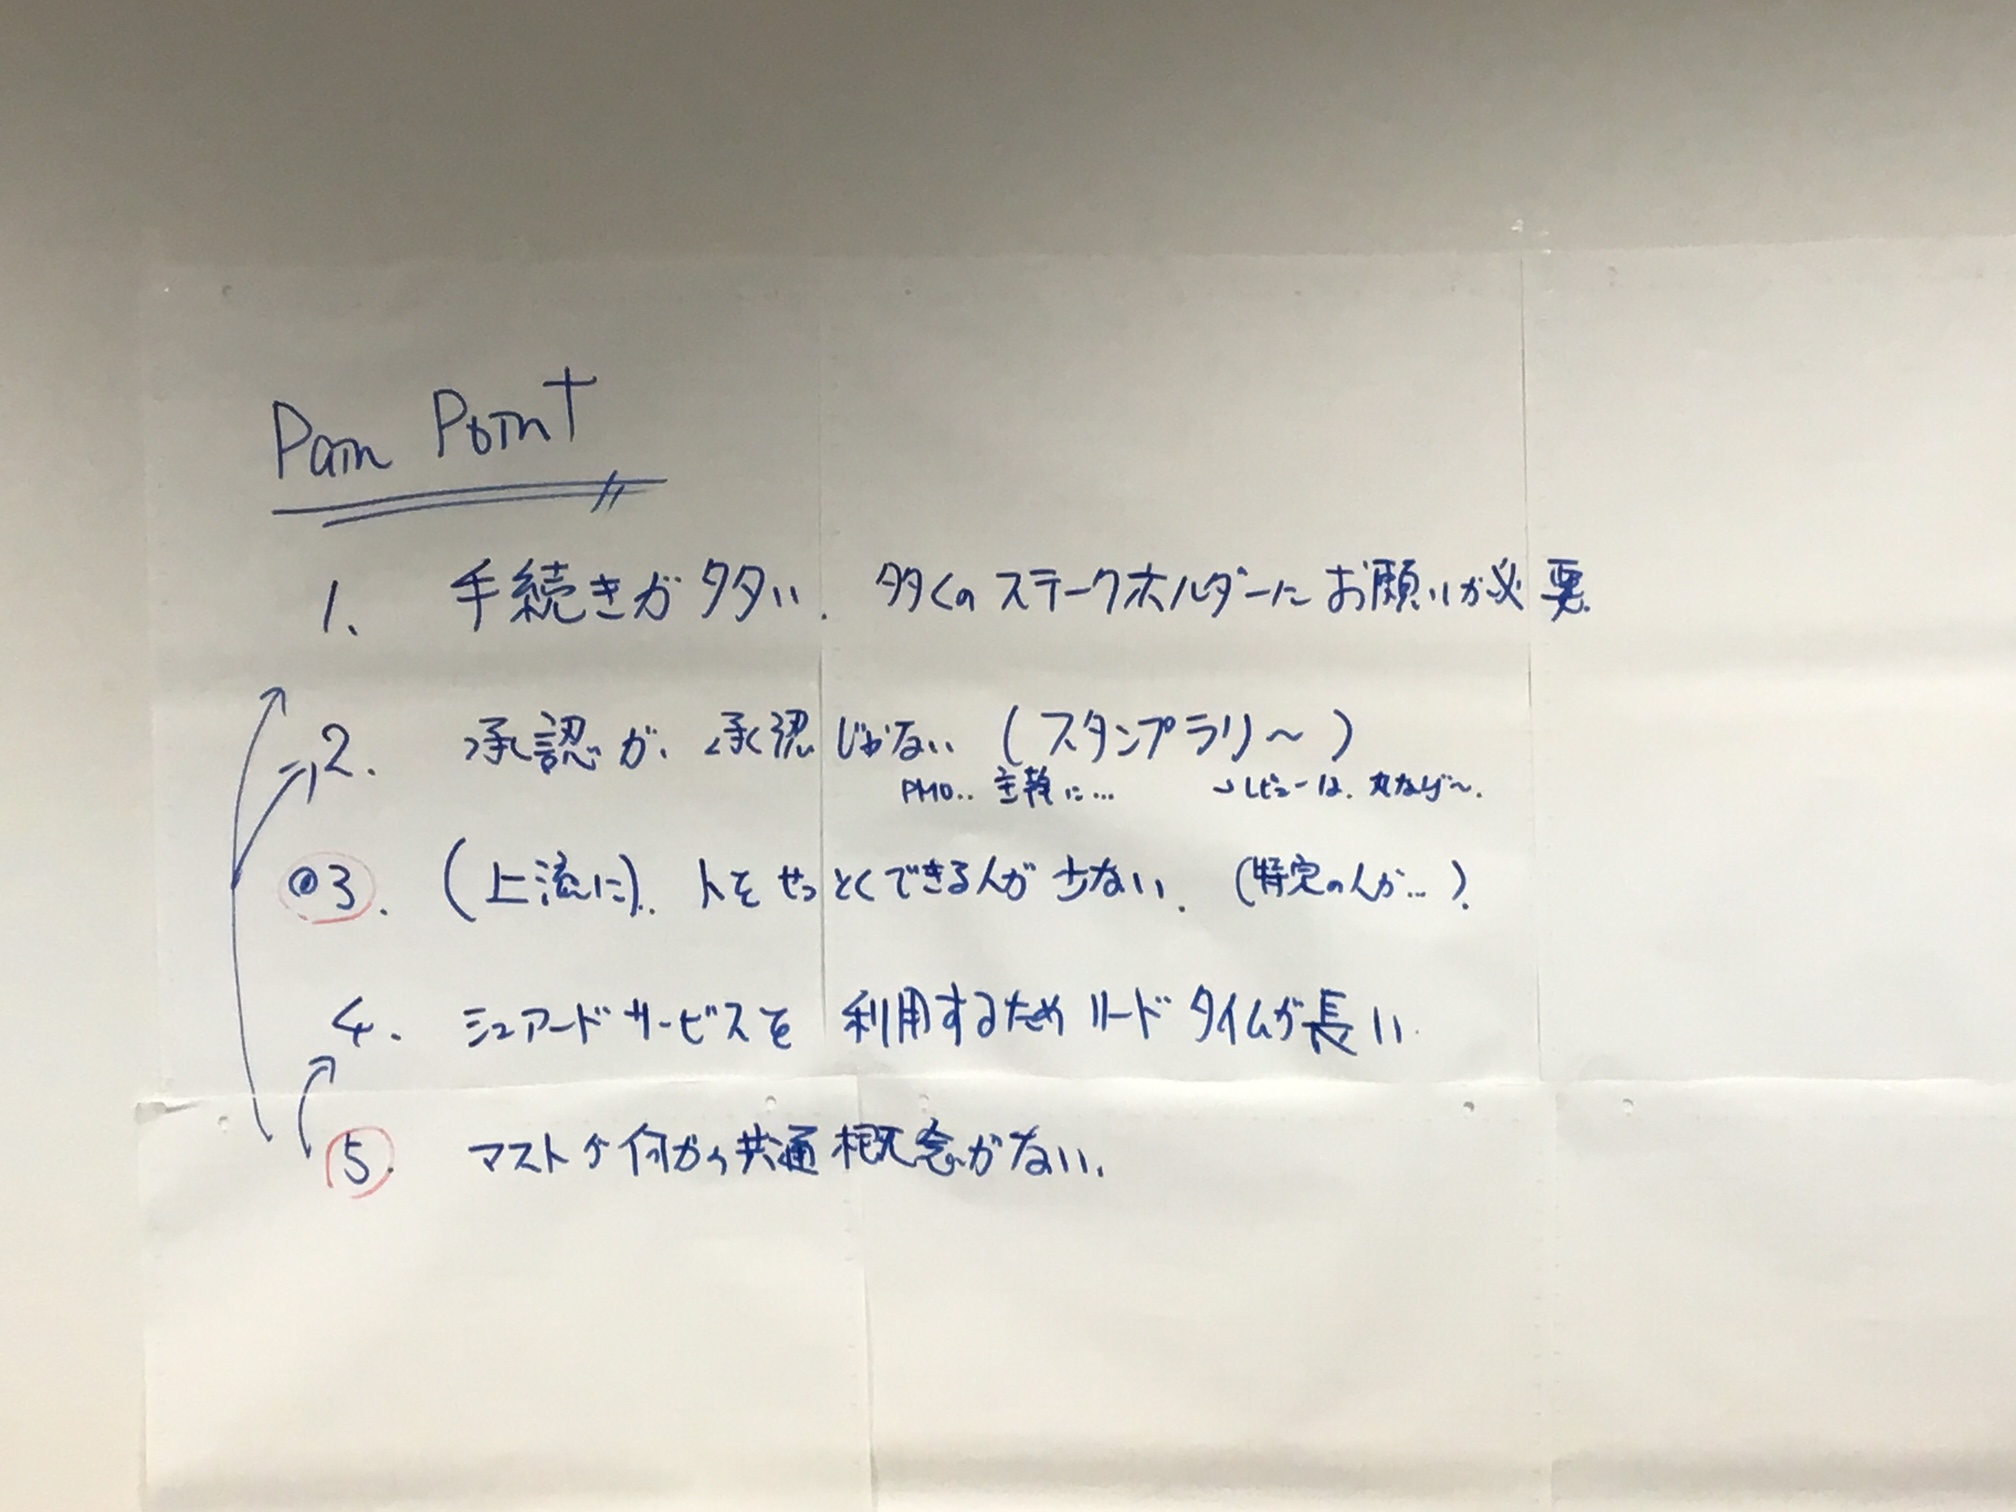 Pain Point
1. 手続きが多い. 多くのステークホルダーにお願いが必要
2. 承認が、承認じゃない (スタンプラリ〜)
PMO.. 主幹に... →レビューは. 丸なげ〜.
@3. (上流に).. 人をせっとくできる人が少ない. (特定の人が...).
4. シェアードサービスを利用するためリードタイムが長い.
5. マストが何かの共通概念がない.